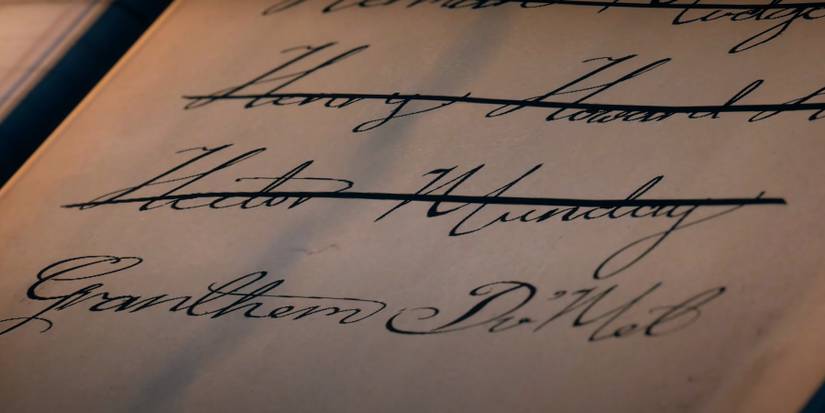 Henry Howard
Hector Munday
Granthem Du'Met